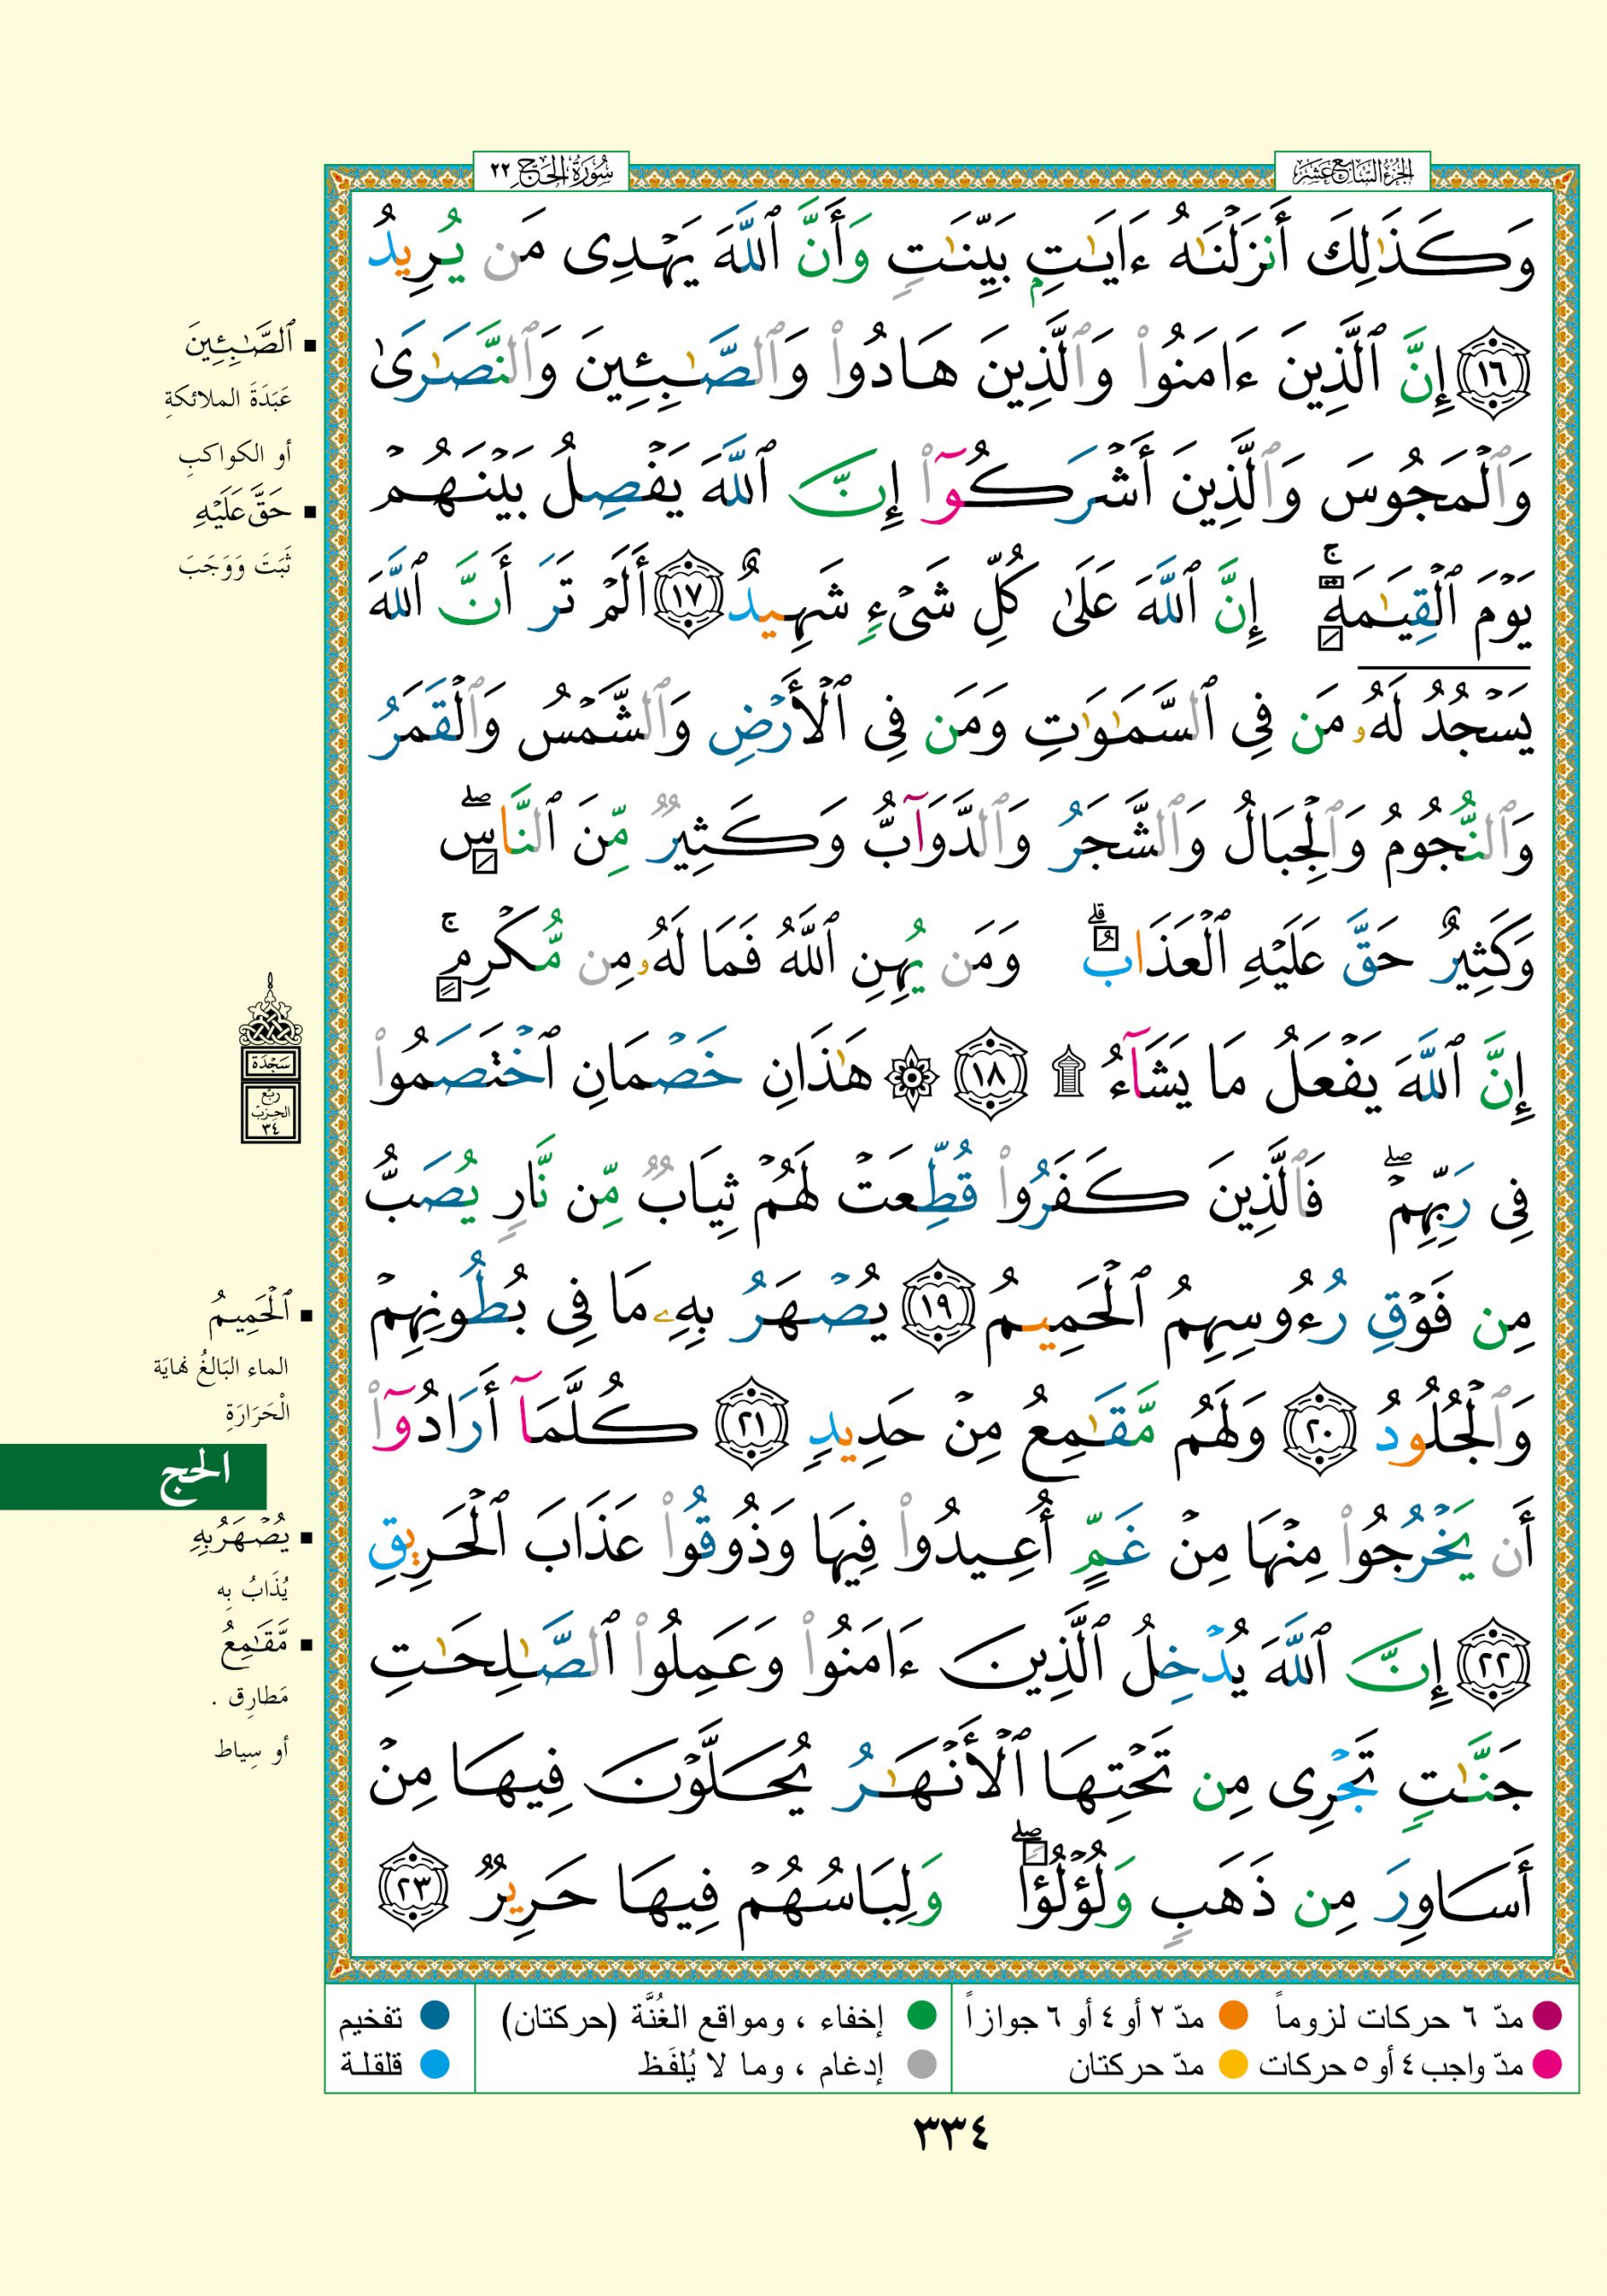 الجزء السابع عشر
سورة الحج ٢٢
وَكَذَٰلِكَ أَنزَلْنَٰهُ ءَايَٰتٍۭ بَيِّنَٰتٍ وَأَنَّ ٱللَّهَ يَهْدِى مَن يُرِيدُ
١٦ إِنَّ ٱلَّذِينَ ءَامَنُوا۟ وَٱلَّذِينَ هَادُوا۟ وَٱلصَّٰبِـِٔينَ وَٱلنَّصَٰرَىٰ
وَٱلْمَجُوسَ وَٱلَّذِينَ أَشْرَكُوٓا۟ إِنَّ ٱللَّهَ يَفْصِلُ بَيْنَهُمْ
يَوْمَ ٱلْقِيَٰمَةِ ۚ إِنَّ ٱللَّهَ عَلَىٰ كُلِّ شَىْءٍ شَهِيدٌ ١٧ أَلَمْ تَرَ أَنَّ ٱللَّهَ
يَسْجُدُ لَهُۥ مَن فِى ٱلسَّمَٰوَٰتِ وَمَن فِى ٱلْأَرْضِ وَٱلشَّمْسُ وَٱلْقَمَرُ
وَٱلنُّجُومُ وَٱلْجِبَالُ وَٱلشَّجَرُ وَٱلدَّوَآبُّ وَكَثِيرٌ مِّنَ ٱلنَّاسِ ۖ
وَكَثِيرٌ حَقَّ عَلَيْهِ ٱلْعَذَابُ ۗ وَمَن يُهِنِ ٱللَّهُ فَمَا لَهُۥ مِن مُّكْرِمٍ ۚ
إِنَّ ٱللَّهَ يَفْعَلُ مَا يَشَآءُ ۩ ١٨ ۞ هَٰذَانِ خَصْمَانِ ٱخْتَصَمُوا۟
فِى رَبِّهِمْ ۖ فَٱلَّذِينَ كَفَرُوا۟ قُطِّعَتْ لَهُمْ ثِيَابٌ مِّن نَّارٍ يُصَبُّ
مِن فَوْقِ رُءُوسِهِمُ ٱلْحَمِيمُ ١٩ يُصْهَرُ بِهِۦ مَا فِى بُطُونِهِمْ
وَٱلْجُلُودُ ٢٠ وَلَهُم مَّقَٰمِعُ مِنْ حَدِيدٍ ٢١ كُلَّمَآ أَرَادُوٓا۟
أَن يَخْرُجُوا۟ مِنْهَا مِنْ غَمٍّ أُعِيدُوا۟ فِيهَا وَذُوقُوا۟ عَذَابَ ٱلْحَرِيقِ
٢٢ إِنَّ ٱللَّهَ يُدْخِلُ ٱلَّذِينَ ءَامَنُوا۟ وَعَمِلُوا۟ ٱلصَّٰلِحَٰتِ
جَنَّٰتٍ تَجْرِى مِن تَحْتِهَا ٱلْأَنْهَٰرُ يُحَلَّوْنَ فِيهَا مِنْ
أَسَاوِرَ مِن ذَهَبٍ وَلُؤْلُؤًا ۖ وَلِبَاسُهُمْ فِيهَا حَرِيرٌ ٢٣
ٱلصَّٰبِـِٔينَ
عَبَدَةَ الملائكةِ
أو الكواكبِ
حَقَّ عَلَيْهِ
ثَبَتَ وَوَجَبَ
سَجْدَة
ربع
الحزب
٣٤
ٱلْحَمِيمُ
الماء البَالغُ نهايَة
الْحَرَارَةِ
الحج
يُصْهَرُ بِهِ
يُذَابُ بِه
مَّقَٰمِعُ
مَطارِق .
أو سِياط
مدّ ٦ حركات لزوماً مدّ ٢ أو ٤ أو ٦ جوازاً إخفاء ، ومواقع الغُنَّة (حركتان) تفخيم
مدّ واجب ٤ أو ٥ حركات مدّ حركتان إدغام ، وما لا يُلفَظ قلقلة
٣٣٤